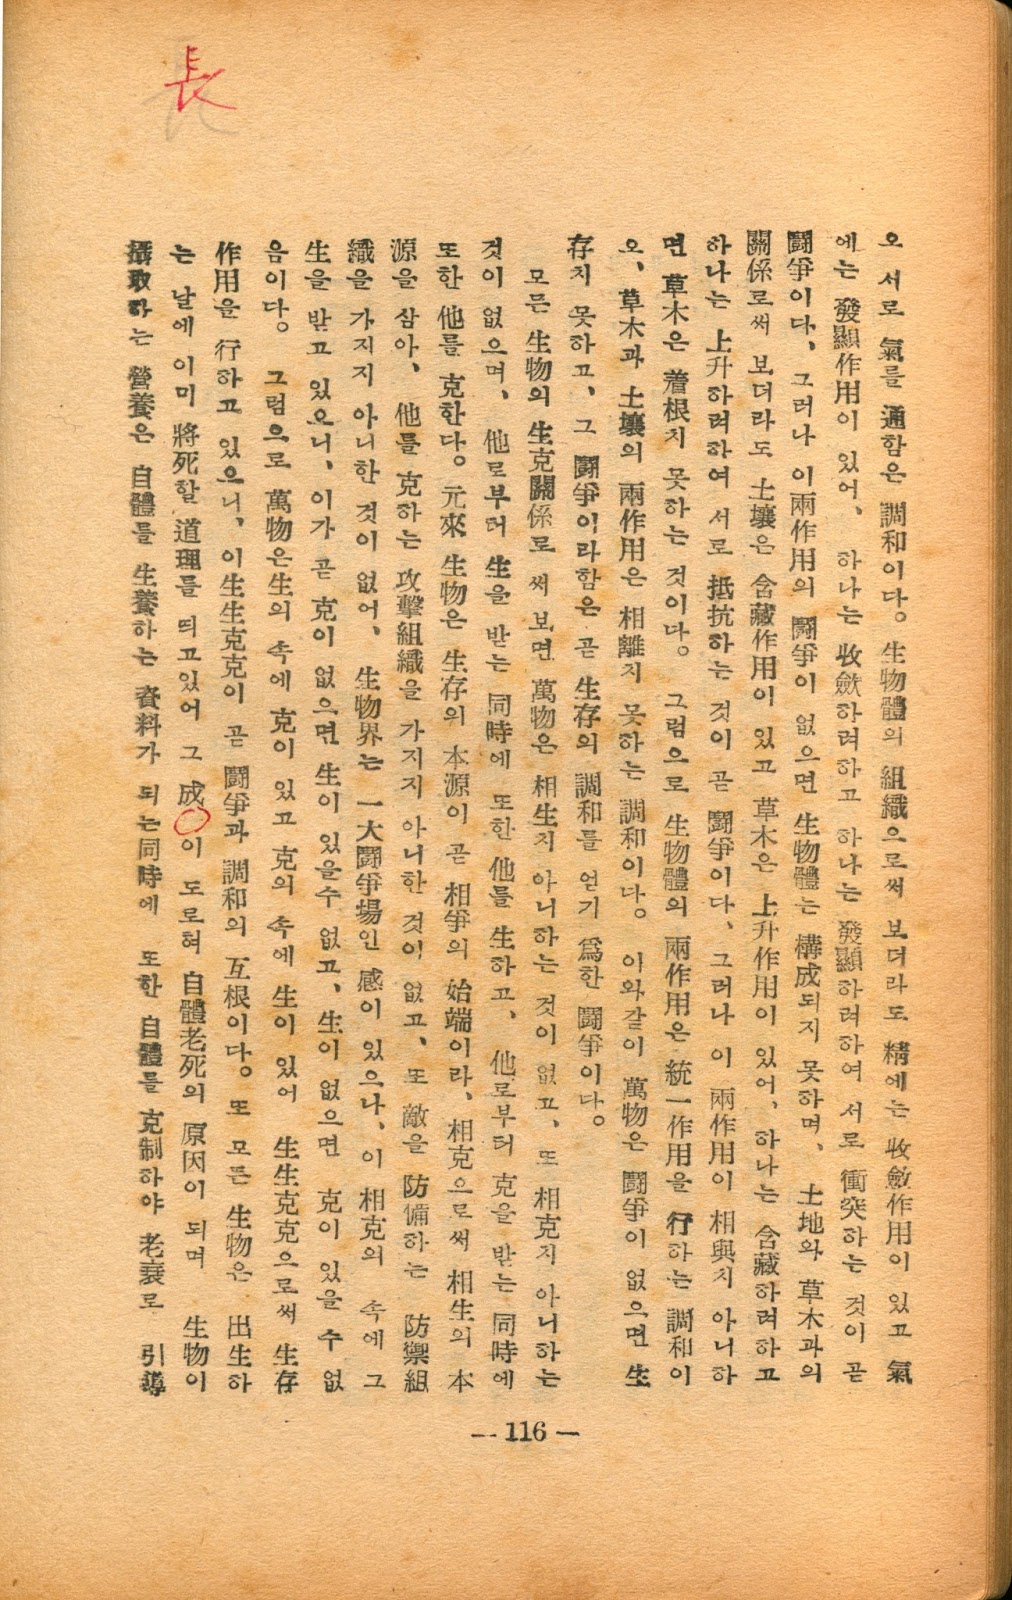 長
오 서로 氣를 通함은 調和이다。生物體의 組織으로써 보더라도 精에는 收斂作用이 있고 氣
에는 發顯作用이 있어、 하나는 收斂하려하고 하나는 發顯하려하여 서로 衝突하는 것이 곧
鬪爭이다、그러나 이 兩作用의 鬪爭이 없으면 生物體는 構成되지 못하며、 土地와 草木과의
關係로써 보더라도 土壤은 含藏作用이 있고 草木은 上升作用이 있어、하나는 含藏하려하고
하나는 上升하려하여 서로 抵抗하는 것이 곧 鬪爭이다、그러나 이 兩作用이 相與치 아니하
면 草木은 着根치 못하는 것이다。 그럼으로 生物體의 兩作用은 統一作用을 行하는 調和이
오、草木과 土壤의 兩作用은 相離치 못하는 調和이다。 이와같이 萬物은 鬪爭이 없으면 生
存치 못하고、그 鬪爭이라함은 곧 生存의 調和를 얻기 爲한 鬪爭이다。
모든 生物의 生克關係로 써 보면 萬物은 相生지 아니하는 것이 없고、또 相克지 아니하는
것이 없으며、 他로부터 生을 받는 同時에 또한 他를 生하고、 他로부터 克을 받는 同時에
또한 他를 克한다。元來 生物은 生存의 本源이 곧 相爭의 始端이라、相克으로써 相生의 本
源을 삼아、 他를 克하는 攻擊組織을 가지지 아니한 것이 없고、또 敵을 防備하는 防禦組
織을 가지지 아니한 것이 없어、 生物界는 一大鬪爭場인 感이 있으나、이 相克의 속에 그
生을 받고 있으니、이가 곧 克이 없으면 生이 있을수 없고、生이 없으면 克이 있을 수 없
음이다。 그럼으로 萬物은生의 속에 克이 있고 克의 속에 生이 있어 生生克克으로써 生存
作用을 行하고 있으니、이生生克克이 곧 鬪爭과 調和의 互根이다。또 모든 生物은 出生하
는 날에 이미 將死할 道理를 띄고있어 그 成○이 도로혀 自體老死의 原因이 되며 生物이
攝取하는 營養은 自體를 生養하는 資料가 되는同時에 또한 自體를 克制하야 老衰로 引導
— 116 —